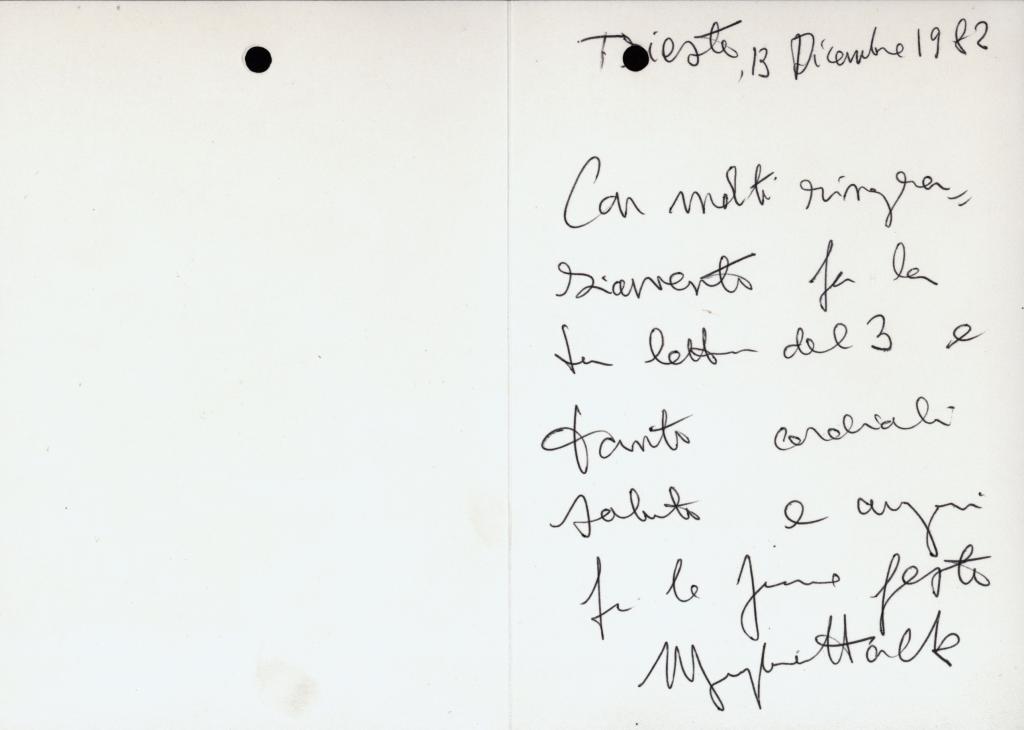 Trieste, 13 Dicembre 1982
Con molti ringra=
ziamenti per la
tua lettera del 3 e
tanti cordiali
saluti e auguri
per le prossime feste
Margherita Hack